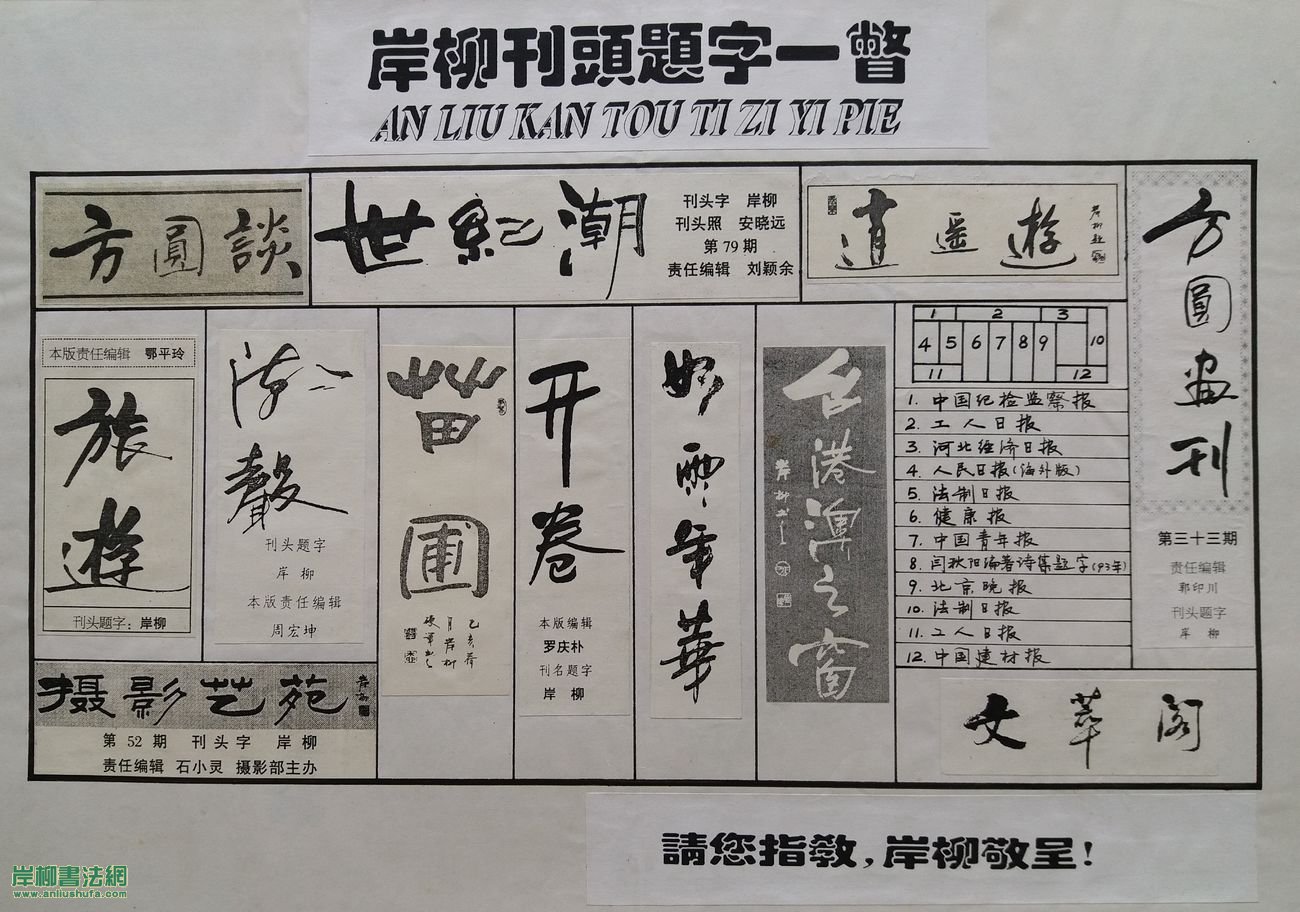 岸柳刊頭題字一瞥
AN LIU KAN TOU TI ZI YI PIE
方圓談
世纪潮
刊头字 岸柳
刊头照 安晓远
第79期
责任编辑 刘颖余
逍遥遊
岸柳题
方圓画刊
第三十三期
责任编辑
郭印川
刊头题字
岸 柳
本版责任编辑 鄂平玲
旅遊
刊头题字：岸柳
聲
刊头题字
岸 柳
本版责任编辑
周宏坤
苗圃
乙亥荷
月岸柳
开卷
本版编辑
罗庆朴
刊名题字
岸 柳
年華
台港澳之窗
岸柳书
1 2 3
4 5 6 7 8 9 10
11 12
1. 中国纪检监察报
2. 工人日报
3. 河北经济日报
4. 人民日报(海外版)
5. 法制日报
6. 健康报
7. 中国青年报
8. 闫秋阳编著诗集题字(93年)
9. 北京晚报
10. 法制日报
11. 工人日报
12. 中国建材报
摄影艺苑
岸柳
第 52 期 刊头字 岸柳
责任编辑 石小灵 摄影部主办
文萃阁
請您指教，岸柳敬呈！
岸柳書法網
www.anliushufa.com